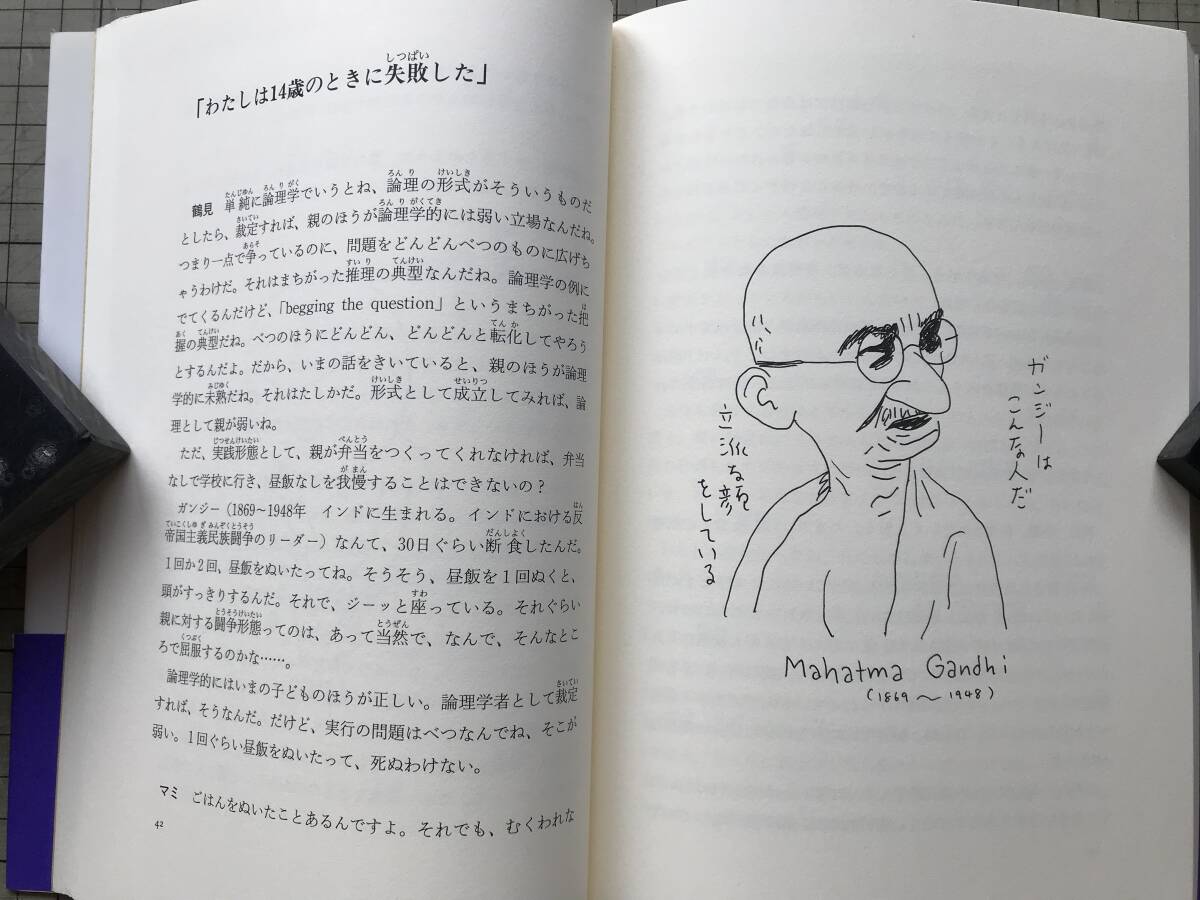 「わたしは14歳のときに失敗した」
しっぱい
鶴見 単純に論理学でいうとね、論理の形式がそういうものだ
たんじゅん ろんりがく ろんり けいしき
としたら、裁定すれば、親のほうが論理学的には弱い立場なんだね。
さいてい ろんりがくてき
つまり一点で争っているのに、問題をどんどんべつのものに広げち
あらそ
ゃうわけだ。それはまちがった推理の典型なんだね。論理学の例に
すいり てんけい
でてくるんだけど、「begging the question」というまちがった把
は
握の典型だね。べつのほうにどんどん、どんどんと転化してやろう
あく てんけい てんか
とするんだよ。だから、いまの話をきいていると、親のほうが論理
学的に未熟だね。それはたしかだ。形式として成立してみれば、論
みじゅく けいしき せいりつ
理として親が弱いね。
ただ、実践形態として、親が弁当をつくってくれなければ、弁当
じっせんけいたい べんとう
なしで学校に行き、昼飯なしを我慢することはできないの？
がまん
ガンジー（1869〜1948年 インドに生まれる。インドにおける反
はん
帝国主義民族闘争のリーダー）なんて、30日ぐらい断食したんだ。
ていこくしゅぎみんぞくとうそう だんしょく
1回か2回、昼飯をぬいたってね。そうそう、昼飯を1回ぬくと、
頭がすっきりするんだ。それで、ジーッと座っている。それぐらい
すわ
親に対する闘争形態ってのは、あって当然で、なんで、そんなとこ
とうそうけいたい とうぜん
ろで屈服するのかな……。
くっぷく
論理学的にはいまの子どものほうが正しい。論理学者として裁定
さいてい
すれば、そうなんだ。だけど、実行の問題はべつなんでね、そこが
弱い。1回ぐらい昼飯をぬいたって、死ぬわけない。
マミ ごはんをぬいたことあるんですよ。それでも、むくわれな
42
ガンジーは
こんな人だ
立派な顔
をしている
Mahatma Gandhi
(1869〜1948)